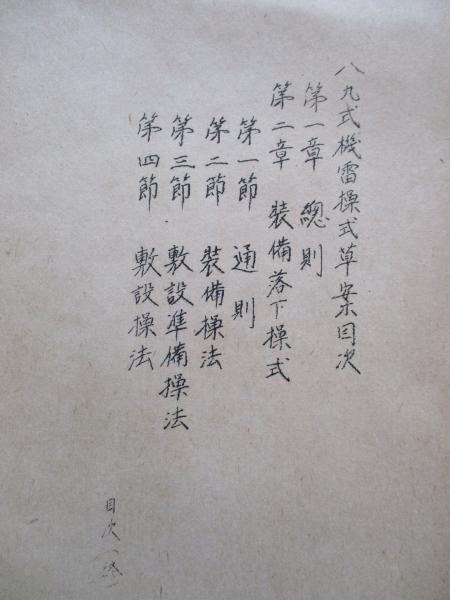 八九式機雷操式草案目次
第一章 總則
第二章 裝備落下操式
第一節 通則
第二節 裝備操法
第三節 敷設準備操法
第四節 敷設操法
目次(終)